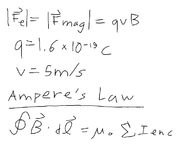 |F⃗e| = |F⃗mag| = qvB
q = 1.6 × 10⁻¹⁹ C
v = 5m/s
Ampere's Law
∮B⃗ · dl⃗ = μ₀ ΣIenc